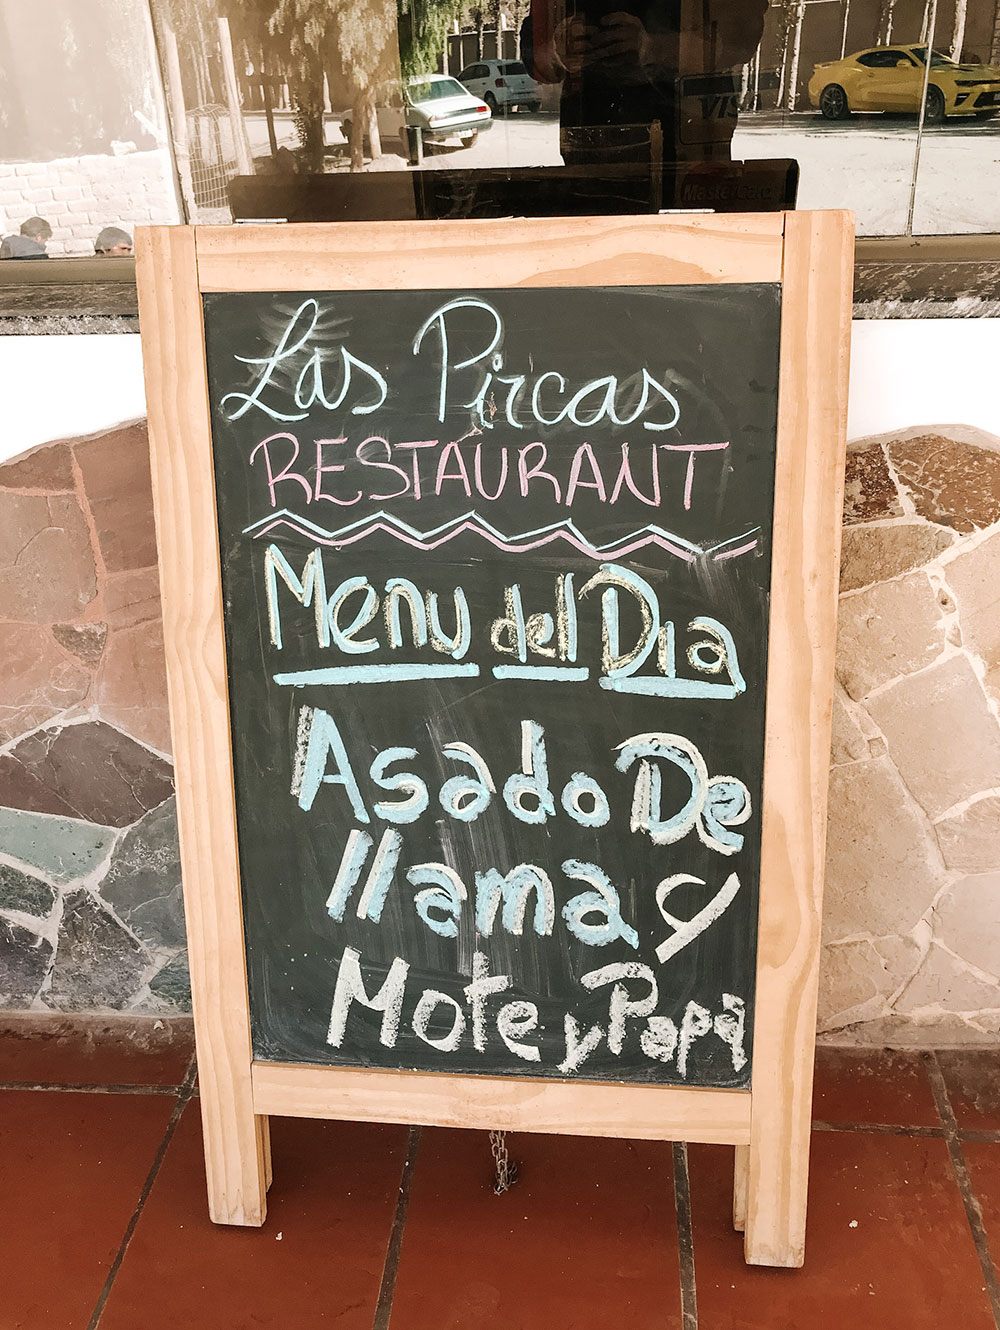 VISA
MasterCard
Las Pircas
RESTAURANT
Menu del Dia
Asado De
llama y
Mote y Papa